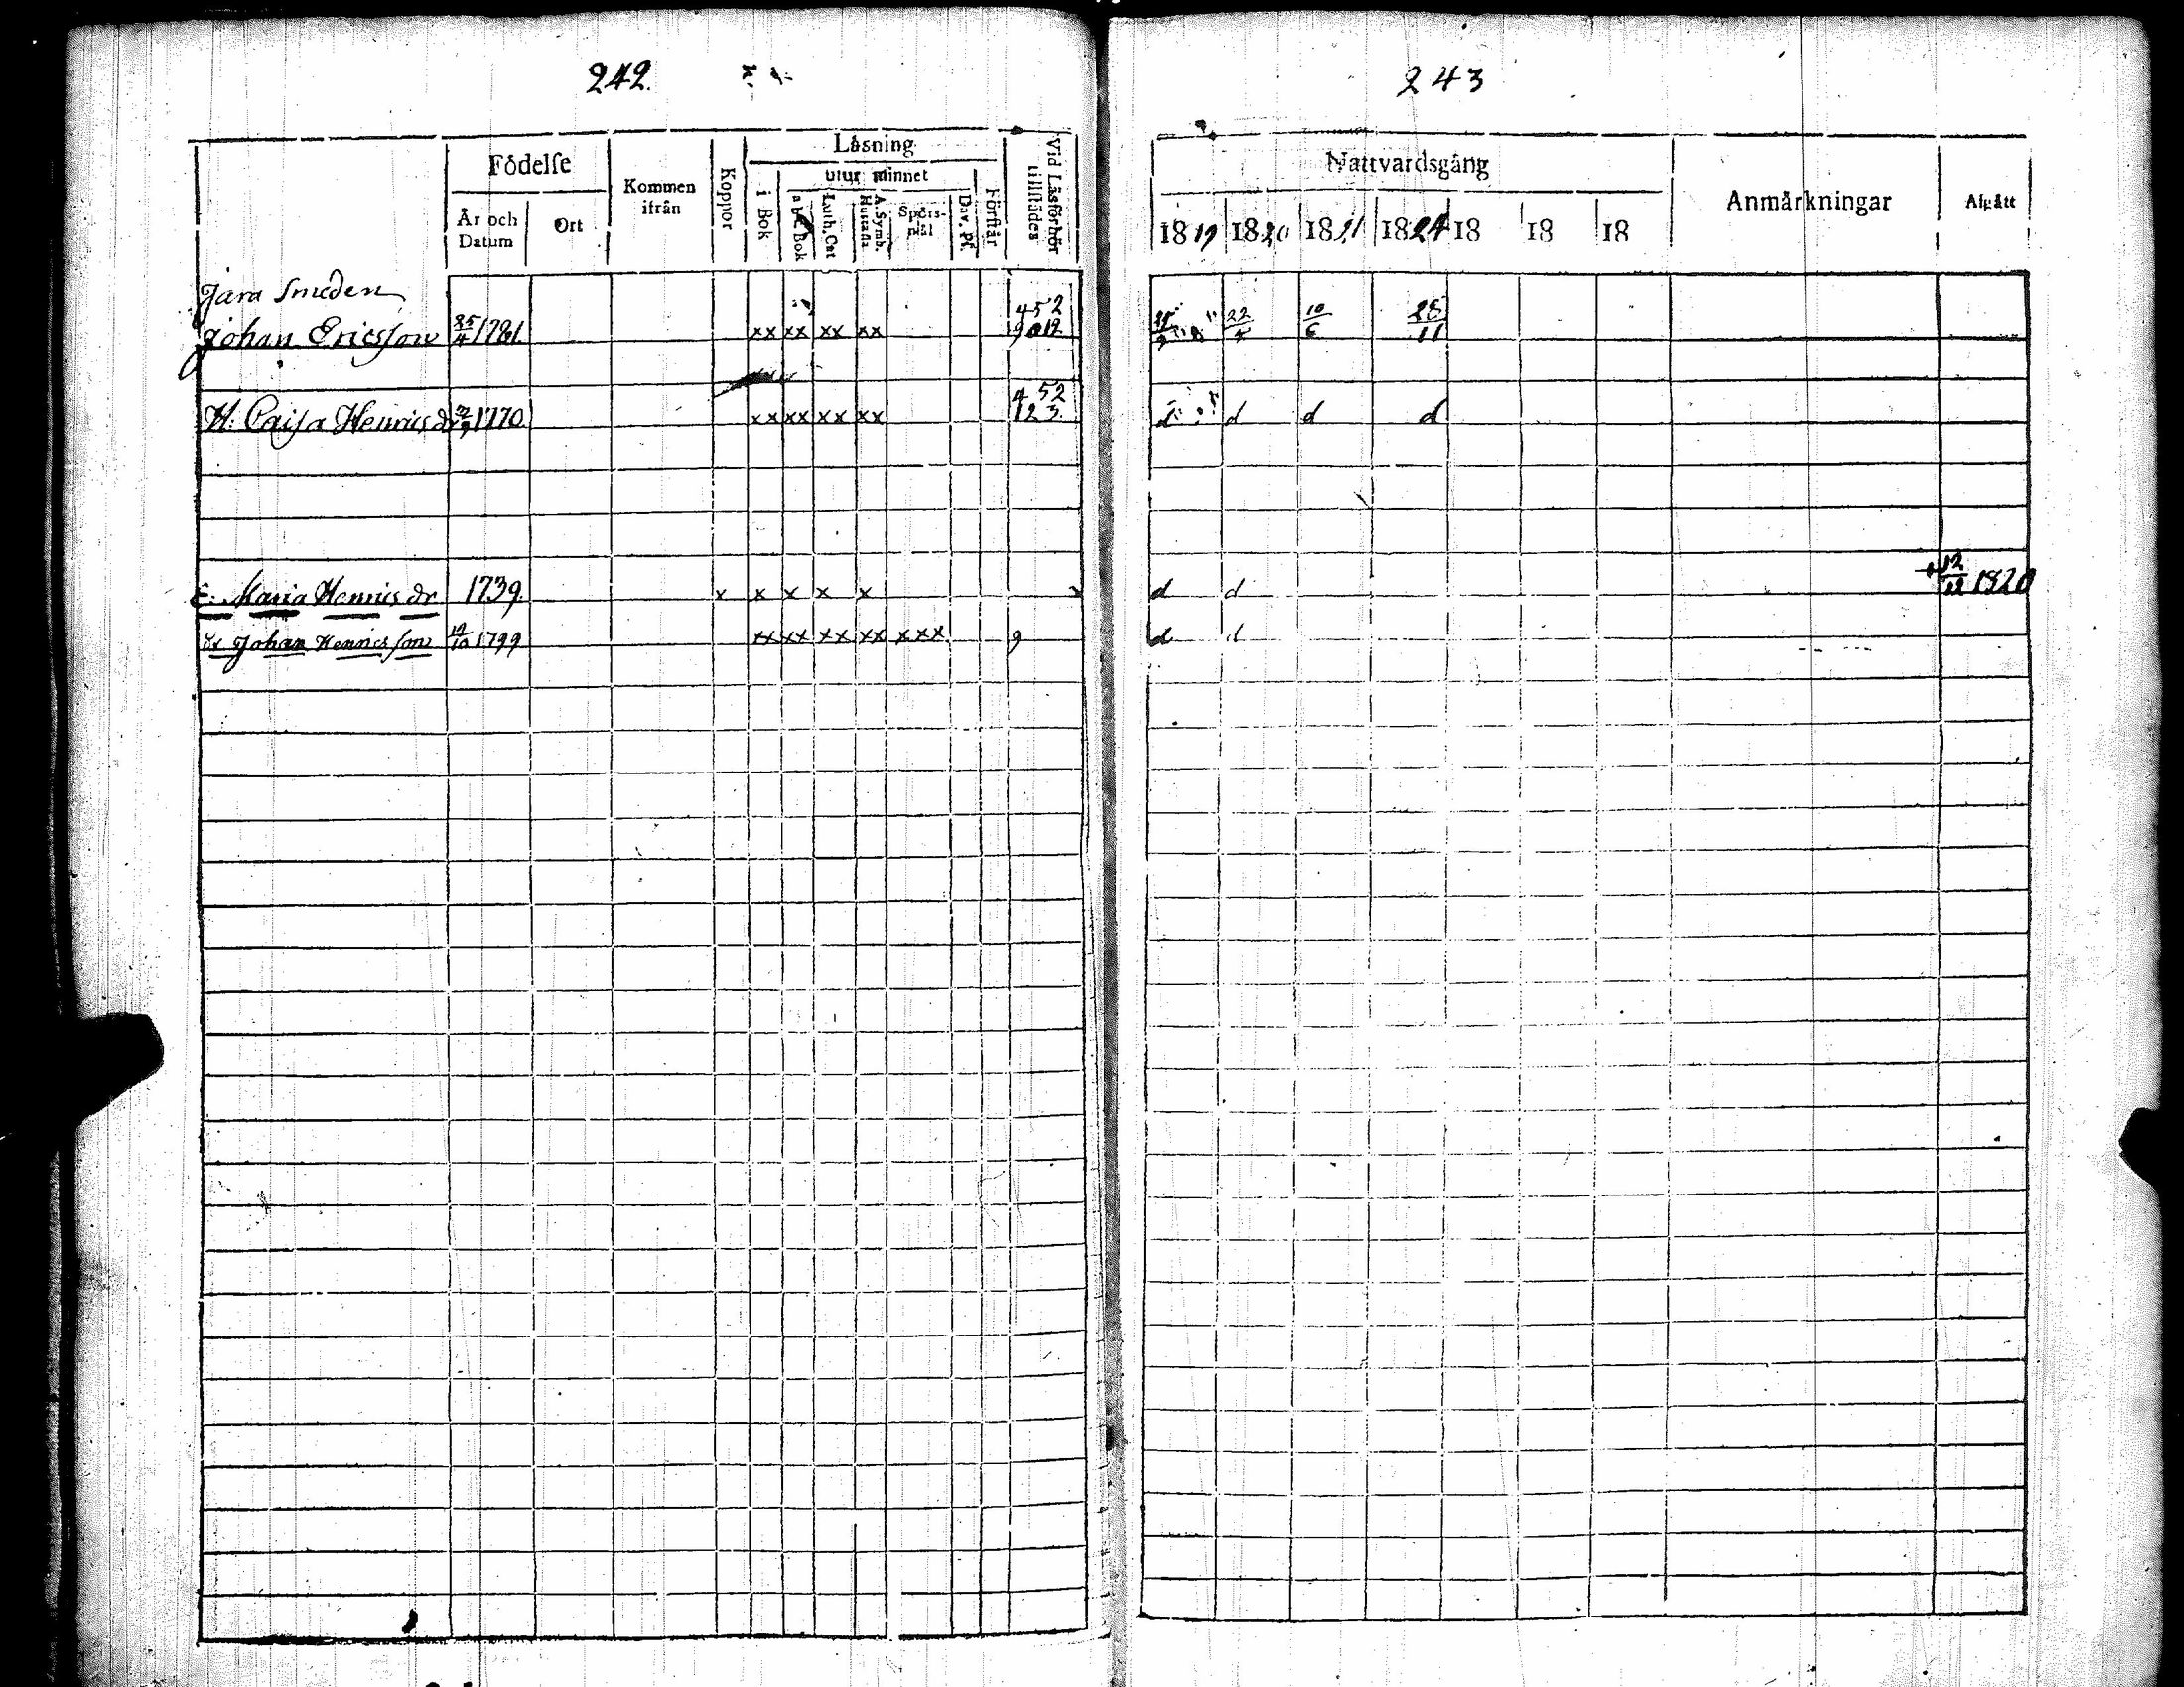 242.
243
Födelse
Läsning
Nattvardsgång
Anmärkningar
Afgått
År och Datum
Ort
Kommen ifrån
Koppor
i Bok
utur minnet
a b c Bok
Luth. Cat
A. Symb. Hustafla
Spörs-mål
Dav. Ps.
Förstår
Vid Läsförhör tillstädes
1819 1820 1821 1824 18 18 18
Jara Smeden
Johan Ericsson 25/4 1761 xx xx xx xx 452 9 12 22/5 10/6 28/11
H: Caisa Henricsdr 1770 xx xx xx xx 452 123 d d d d
E: Maria Henricsdr 1739. x x x x x x d d + 12/12 1820
dr Johan Henricsson 19/10 1799 xx xx xx xx xxx 9 d d